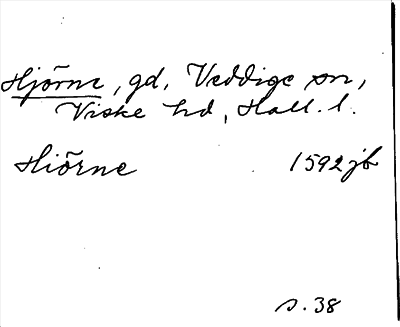 Hjörne, gd, Veddige sn,
Viske hd, Hall. l.
Hiörne 1592 jb
s. 38